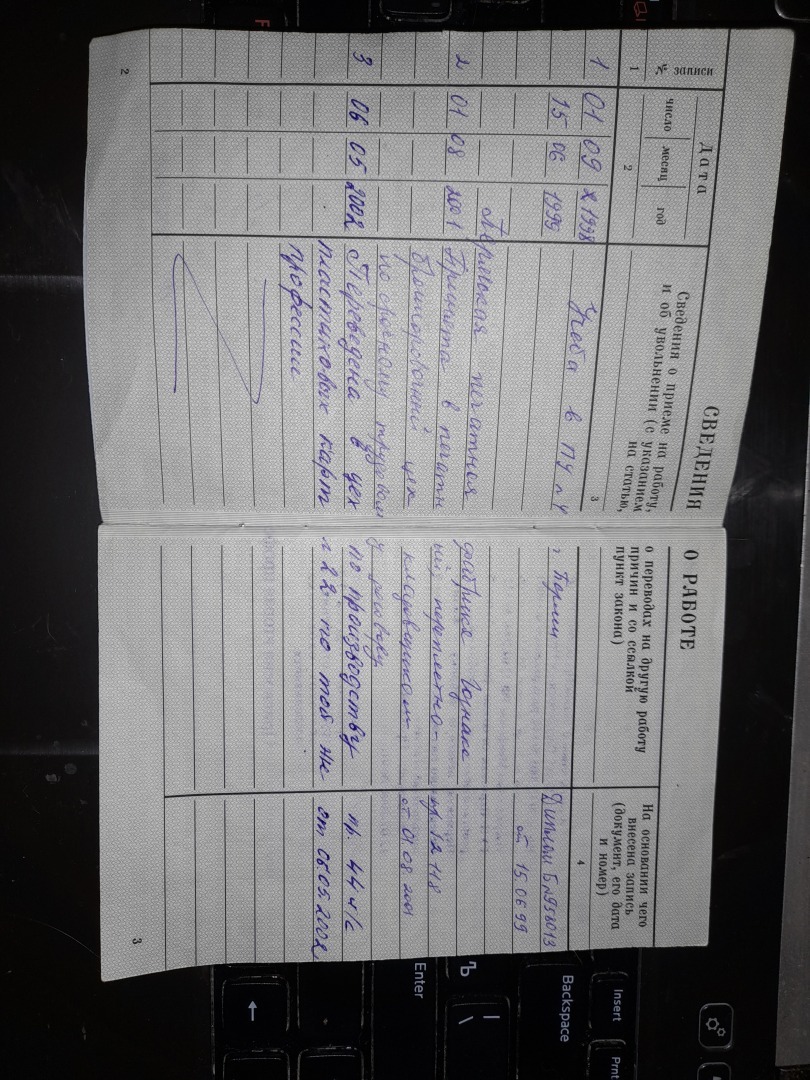 СВЕДЕНИЯ О РАБОТЕ
№ записи
Дата
число месяц год
Сведения о приеме на работу, о переводах на другую работу
и об увольнении (с указанием причин и со ссылкой
на статью, пункт закона)
На основании чего
внесена запись
(документ, его дата
и номер)
1 2 3 4
1 01 09 1998 Учеба в ПУ г. Перми Диплом Б №958013
15 06 1999 от 15.06.99
Пермская печатная фабрика Гознака
2 01 08 2001 Принята в печатный переплетно- пр.
брошюровочный цех кладовщиком от 01.08.2001
по срочному трудовому договору
3 06 05 2002 Переведена в цех по производству пр. 44 л/с
пластиковых карт № 22 по той же от 06.05.2002
профессии
2
3
Enter
Backspace
Insert
Prnt
Ъ
|
\
←
F